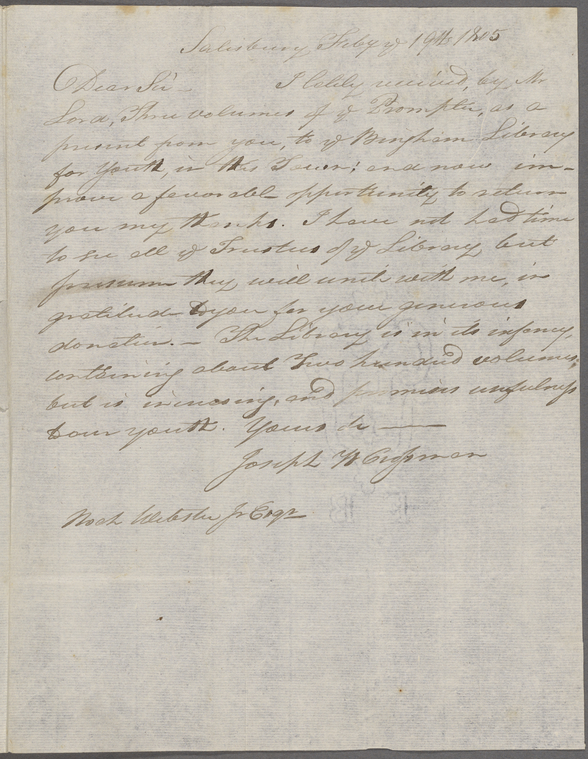 Salisbury Feby ye 19th 1805
Dear Sir I lately received, by Mr
Lord, Three volumes of ye Prompter, as a
present from you, to ye Bingham Library
for Youth in this Town; and now im-
prove a favorable opportunity to return
you my thanks. I have not had time
to see all ye Trustees of ye Library but
presume they will unite with me, in
gratitude to you for your generous
donation. — The Library is in its infancy,
containing about Two hundred volumes,
but is increasing, and promises usefulness
to our youth. Yours &c ——
Joseph W Crossman
Noah Webster Jr Esqr